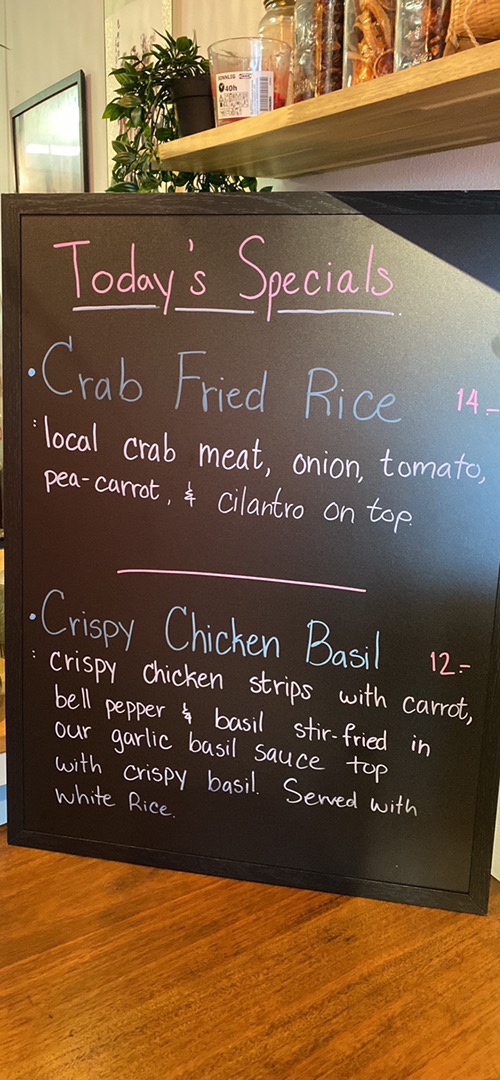 SINNLIG
40h
Today's Specials.
• Crab Fried Rice 14.-
: local crab meat, onion, tomato,
pea-carrot, & cilantro on top.
• Crispy Chicken Basil 12.-
: crispy chicken strips with carrot,
bell pepper & basil stir-fried in
our garlic basil sauce top
with crispy basil. Served with
white Rice.